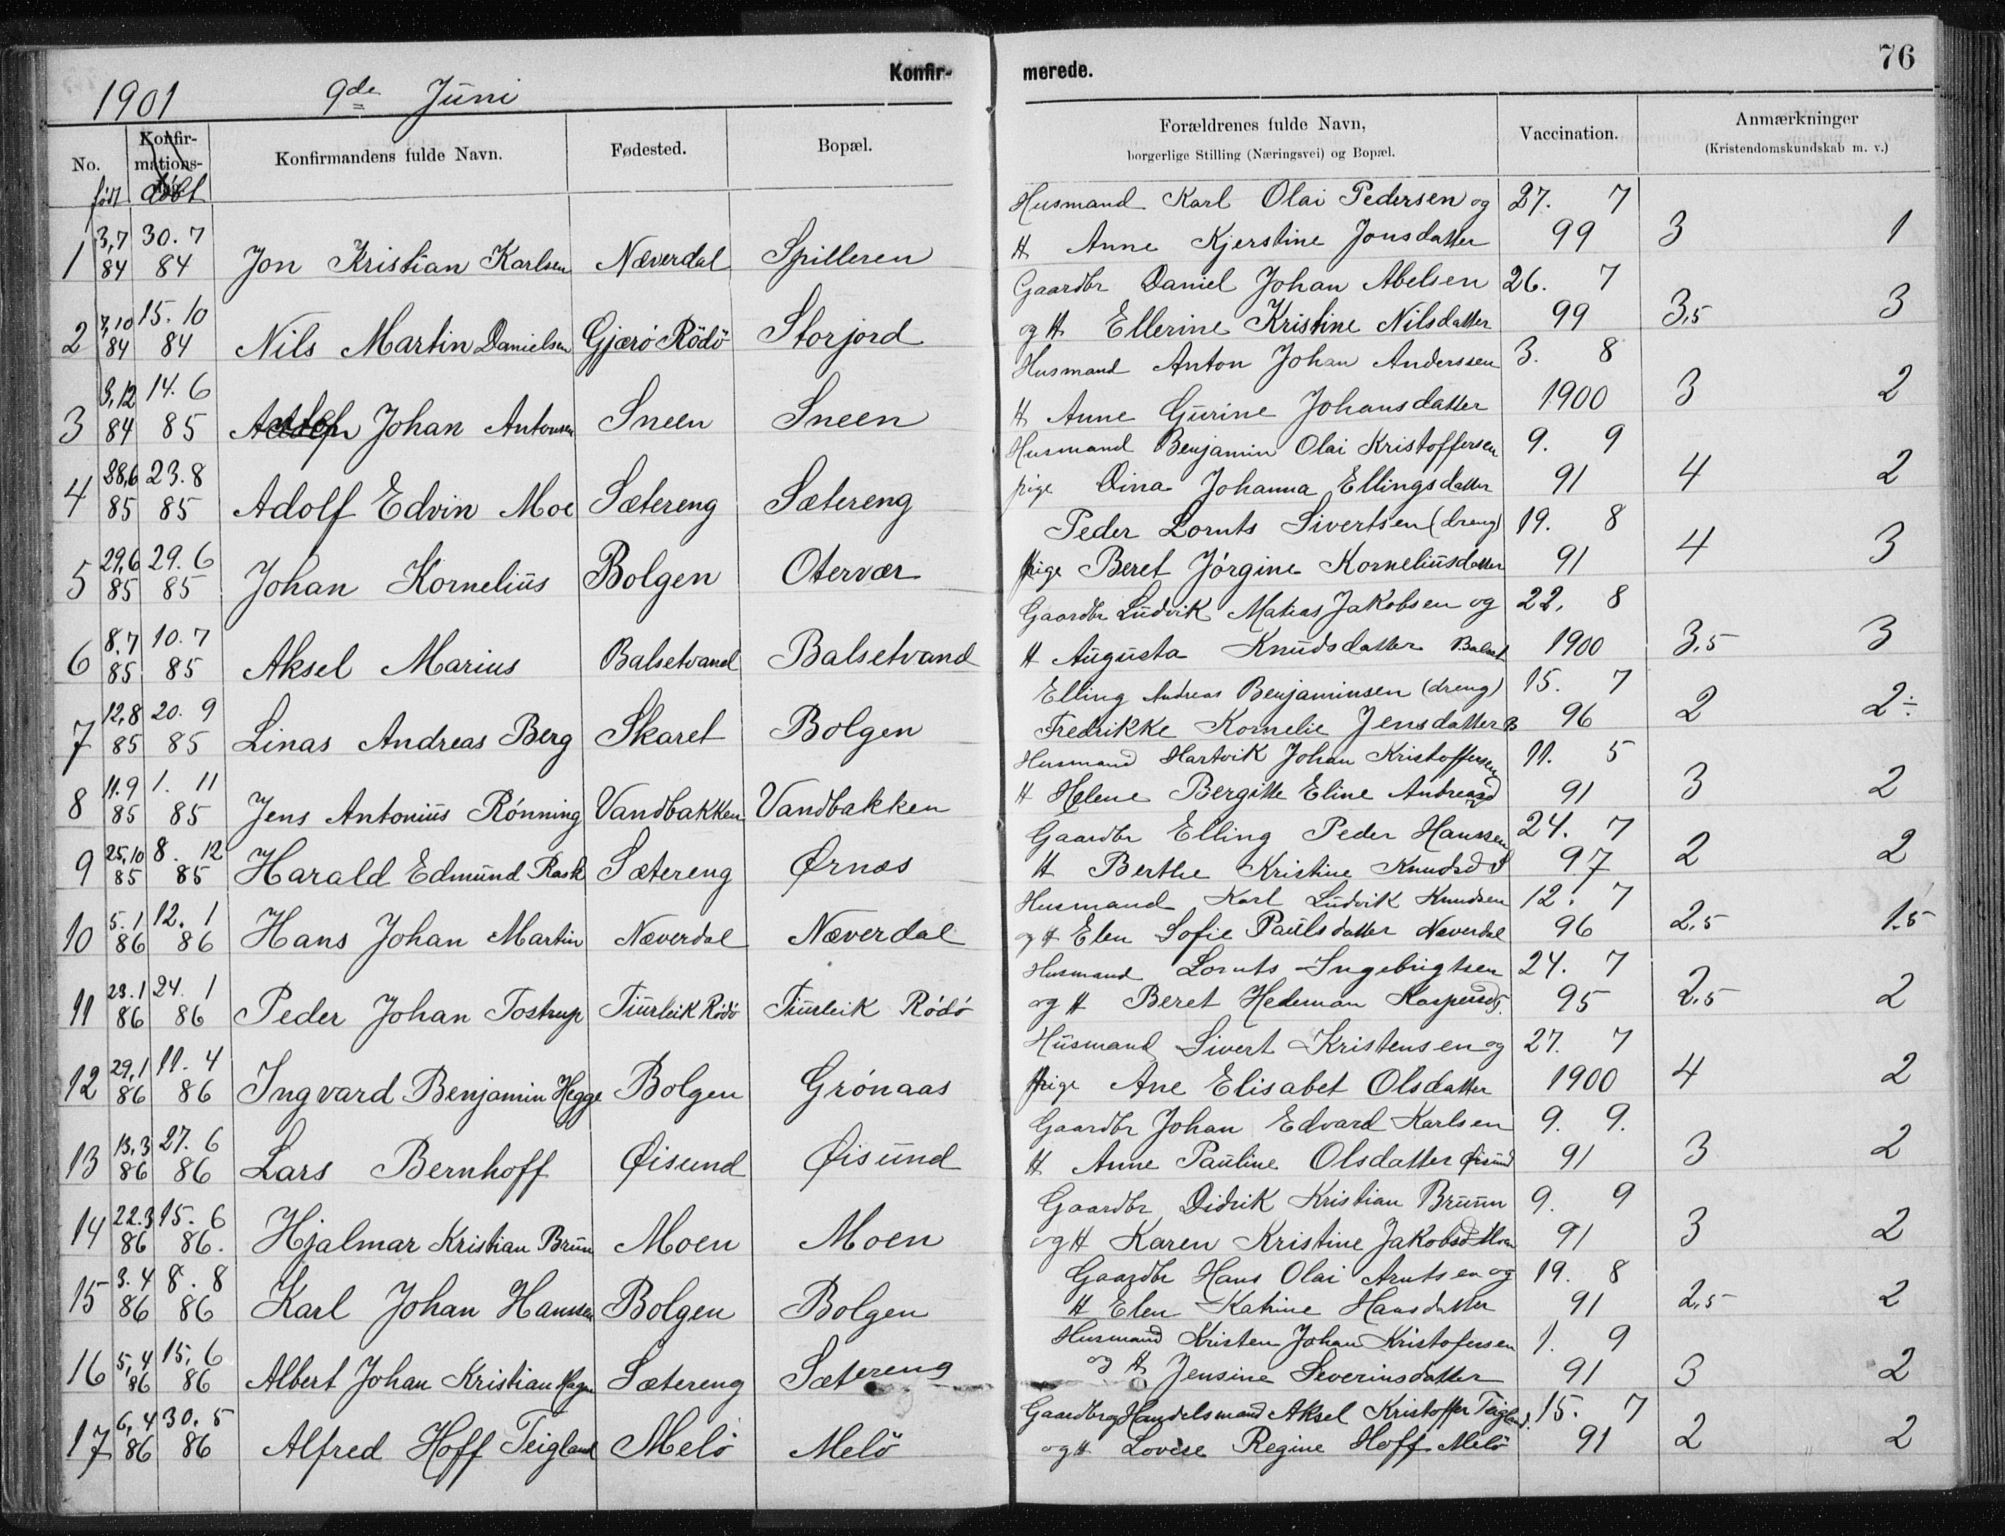 76
1901 9de Juni
Konfir- merede.
No. Konfirmations- født døbt Konfirmandens fulde Navn. Fødested. Bopæl. Forældrenes fulde Navn, borgerlige Stilling (Næringsvei) og Bopæl. Vaccination. Anmærkninger (Kristendomskundskab m. v.)
1 3,7 84 30. 7 84 Jon Kristian Karlsen Næverdal Spilleren Husmand Karl Olai Pedersen og H Anne Kjerstine Jonsdatter 27. 7 99 3 1
2 7,10 84 15. 10 84 Nils Martin Danielsen Gjærö Rödö Storjord Gaardbr Daniel Johan Abelsen og H Ellerine Kristine Nilsdatter 26. 7 99 3,5 3
3 3,12 84 14. 6 85 Johan Antonsen Sneen Sneen Husmand Anton Johan Anderssen H Anne Gurine Johansdatter 3. 8 1900 3 2
4 28,6 85 23. 8 85 Adolf Edvin Moe Sætereng Sætereng Husmand Benjamin Olai Kristoffersen pige Dina Johanna Ellingsdatter 9. 9 91 4 2
5 29,6 85 29. 6 85 Johan Kornelius Bolgen Otervær Peder Lornts Sivertsen (dreng) pige Beret Jörgine Korneliusdatter 19. 8 91 4 3
6 8.7 85 10. 7 85 Aksel Marius Balsetvand Balsetvand Gaardbr Ludvik Matias Jakobsen og H Augusta Knudsdatter 22. 8 1900 3,5 3
7 12,8 85 20. 9 85 Linas Andreas Berg Skaret Bolgen Elling Andreas Benjaminsen (dreng) Fredrikke Kornelie Jensdatter B 15. 7 96 2 2÷
8 11.9 85 1. 11 85 Jens Antonius Rönning Vandbakken Vandbakken Husmand Hartvik Johan Kristoffersen H Helene Bergitte Eline Andreasd 11. 5 91 3 2
9 25,10 85 8. 12 85 Harald Edmund Rask Sætereng Ørnæs Gaardbr Elling Peder Hanssen H Berthe Kristine Knudsd S 24. 7 97 2 2
10 5. 1 86 12. 1 86 Hans Johan Martin Næverdal Næverdal Husmand Karl Ludvik Knudsen og H Elen Sofie Paulsdatter Næverdal 12. 7 96 2,5 1.5
11 23. 1 86 24. 1 86 Peder Johan Tostrup Tiurleik Rödö Tiurleik Rödö Husmand Lornts Ingebrigtsen og H Beret Hedeman Kaspersd 24. 7 95 2,5 2
12 29,1 86 11. 4 86 Ingvard Benjamin Hegge Bolgen Grönaas Husmand Sivert Kristensen og pige Ane Elisabet Olsdatter 27. 7 1900 4 2
13 13,3 86 27. 6 86 Lars Bernhoff Øisund Øisund Gaardbr Johan Edvard Karlsen H Anne Pauline Olsdatter Øisund 9. 9. 91 3 2
14 22.3 86 15. 6 86. Hjalmar Kristian Brun Moen Moen Gaardbr Didrik Kristian Bruun og H Karen Kristine Jakobsd Moen 9. 9 91 3 2
15 3. 4 86 8. 8 86 Karl Johan Hanssen Bolgen Bolgen Gaardbr Hans Olai Arntsen og H Elen Katrine Hansdatter 19. 8 91 2,5 2
16 5,4 86 15, 6 86 Albert Johan Kristian Hagen Sætereng Sætereng Husmand Kristen Johan Kristofersen og H Jensine Severinsdatter 1. 9 91 3 2
17 6,4 86 30. 5 86 Alfred Hoff Teigland Melö Melö Gaardbr og Handelsmand Aksel Kristoffer Teigland. og H Lovise Regine Hoff Melö 15. 7 91 2 2